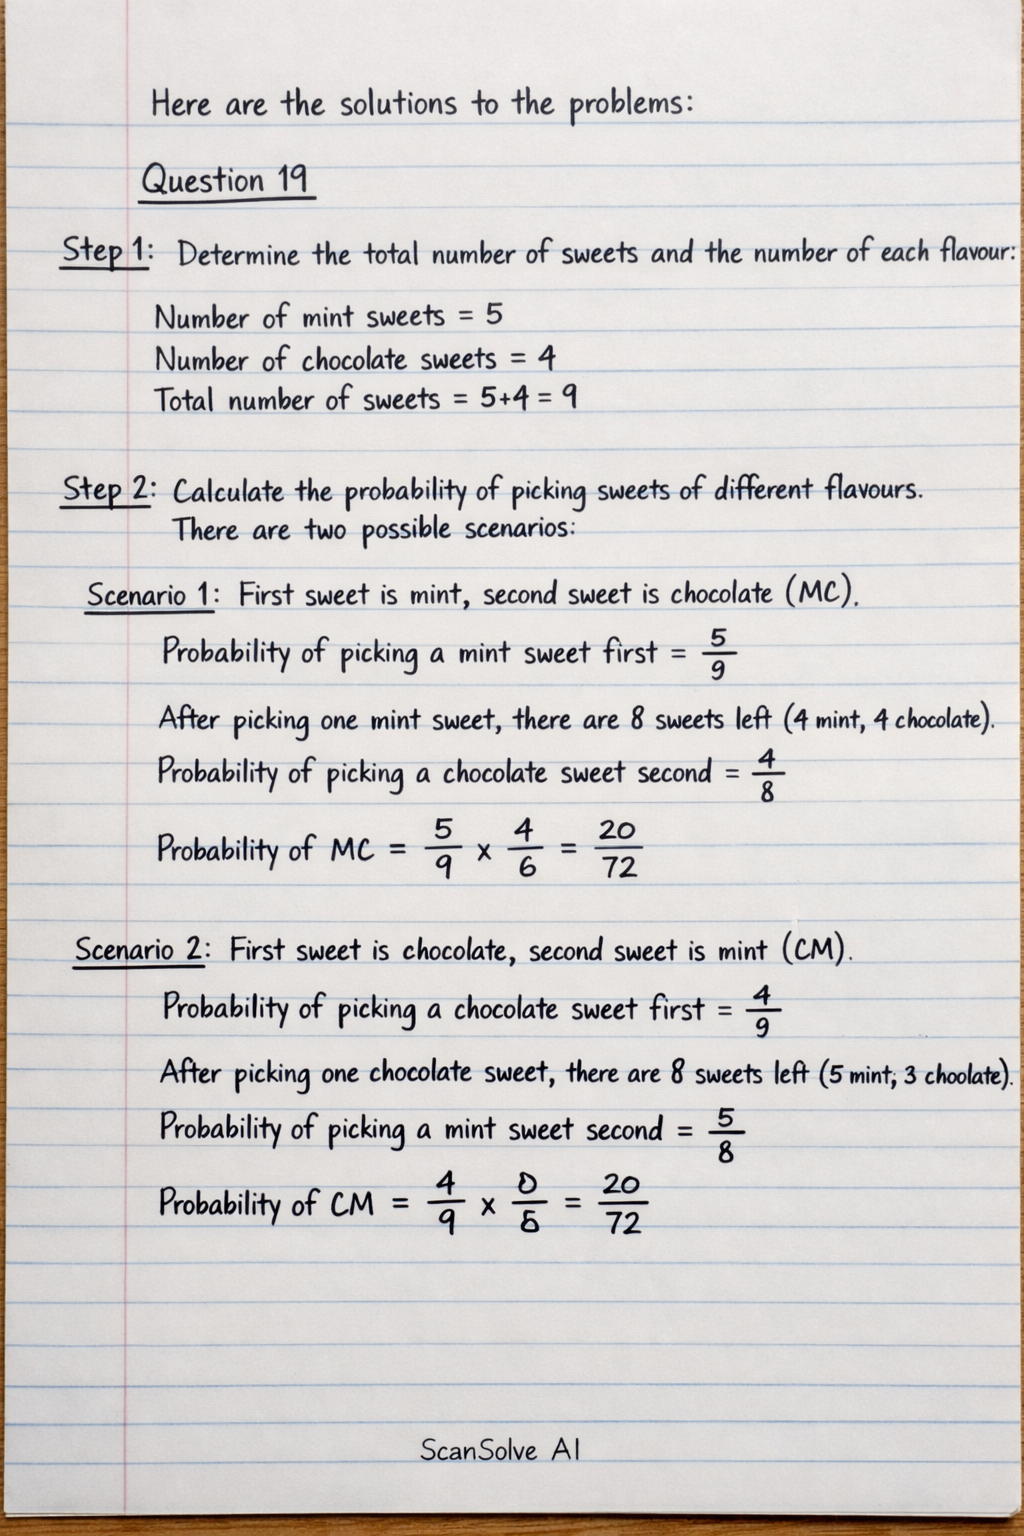 Here are the solutions to the problems:
Question 19
Step 1: Determine the total number of sweets and the number of each flavour:
Number of mint sweets = 5
Number of chocolate sweets = 4
Total number of sweets = 5+4 = 9
Step 2: Calculate the probability of picking sweets of different flavours.
There are two possible scenarios:
Scenario 1: First sweet is mint, second sweet is chocolate (MC).
Probability of picking a mint sweet first = 5/9
After picking one mint sweet, there are 8 sweets left (4 mint, 4 chocolate).
Probability of picking a chocolate sweet second = 4/8
Probability of MC = 5/9 x 4/6 = 20/72
Scenario 2: First sweet is chocolate, second sweet is mint (CM).
Probability of picking a chocolate sweet first = 4/9
After picking one chocolate sweet, there are 8 sweets left (5 mint, 3 choolate).
Probability of picking a mint sweet second = 5/8
Probability of CM = 4/9 x = 20/72
ScanSolve AI